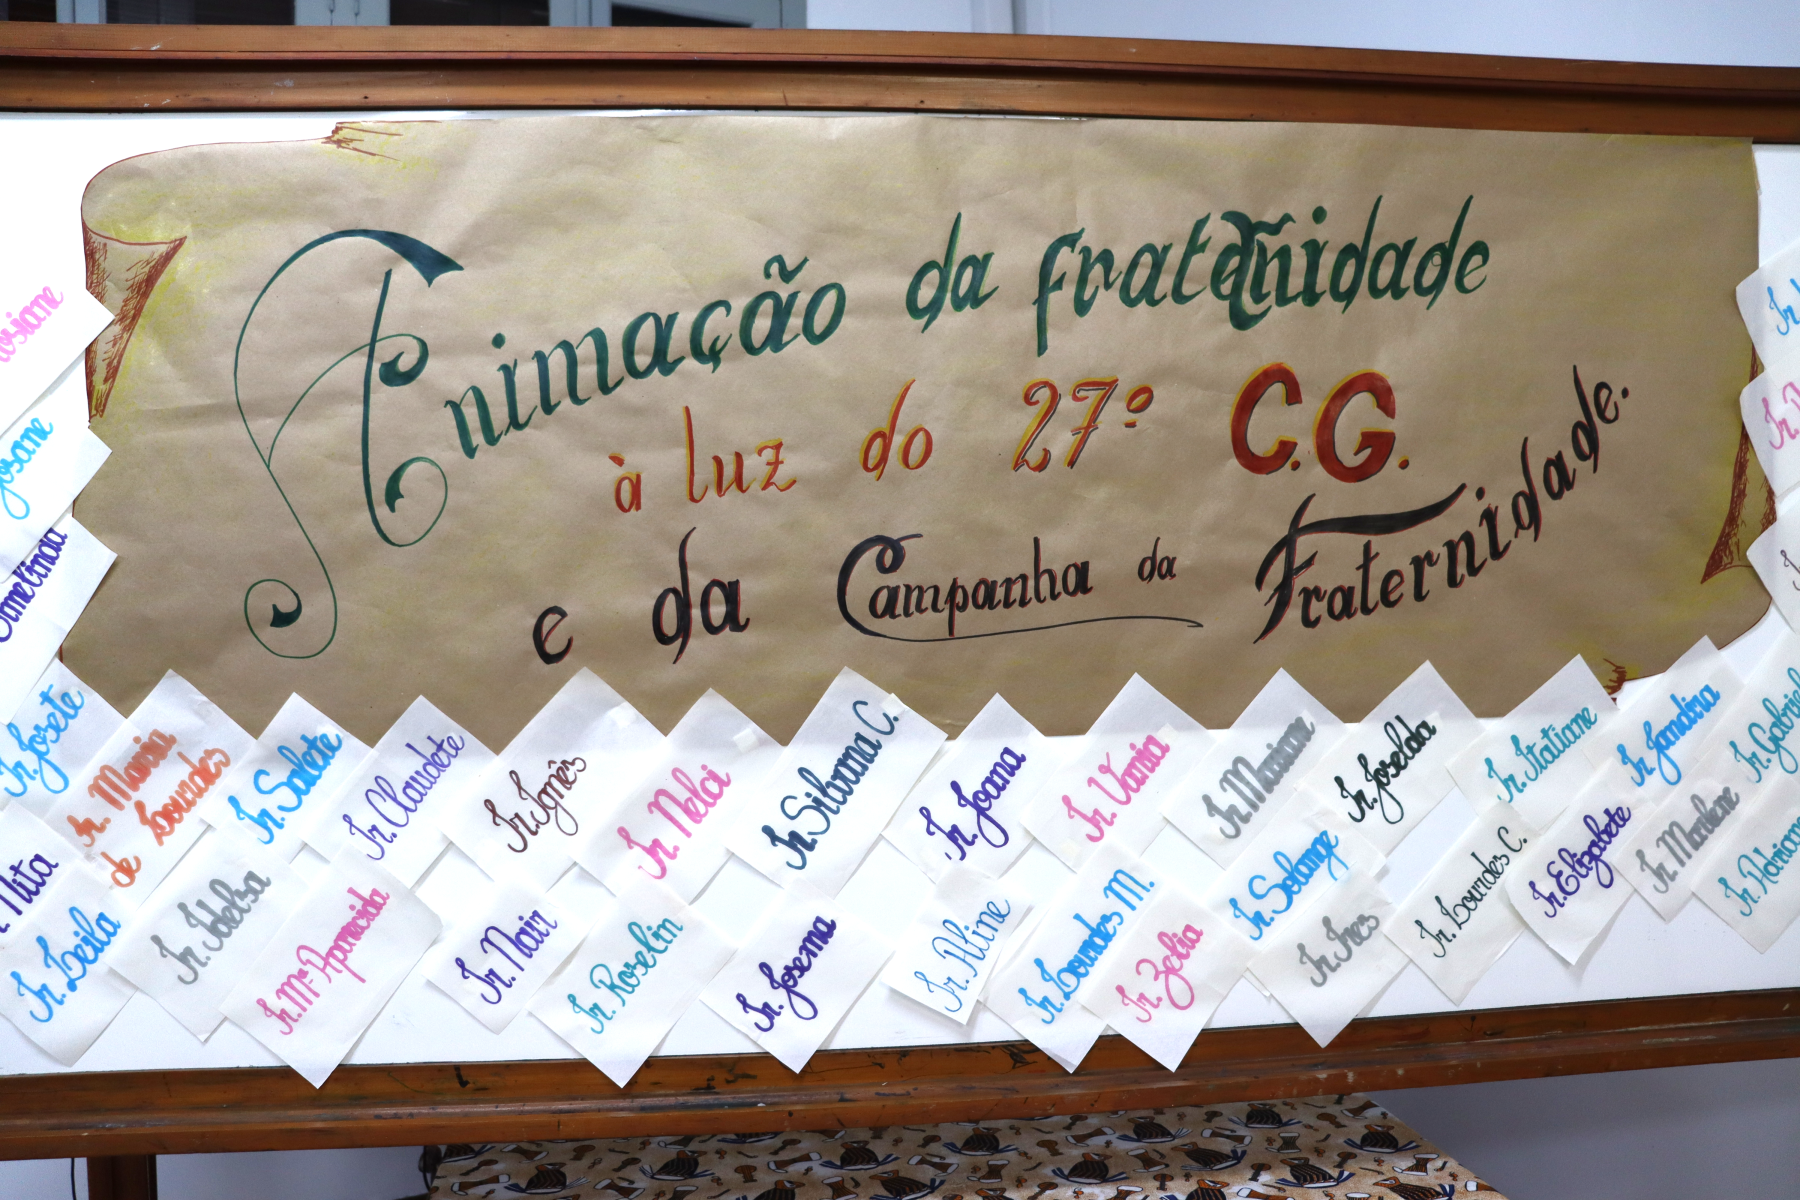 Animação da fraternidade
à luz do 27º C.G.
e da Campanha da Fraternidade.
Josane
Ir. Josete
Ir. Maria de Lourdes
Ir. Salete
Ir. Claudete
Ir. Ignês
Ir. Nelci
Ir. Silvana C.
Ir. Joana
Ir. Vania
Ir. Mariana
Ir. Joselda
Ir. Itatiane
Ir. Jandira
Ir. Gabriel
Ir. Leila
Ir. Idelsa
Ir. Mª Aparecida
Ir. Nair
Ir. Roselin
Ir. Josema
Ir. Aline
Ir. Lourdes M.
Ir. Zelia
Ir. Solange
Ir. Ires
Ir. Lourdes C.
Ir. Elizabete
Ir. Marilene
Ir. Adriana